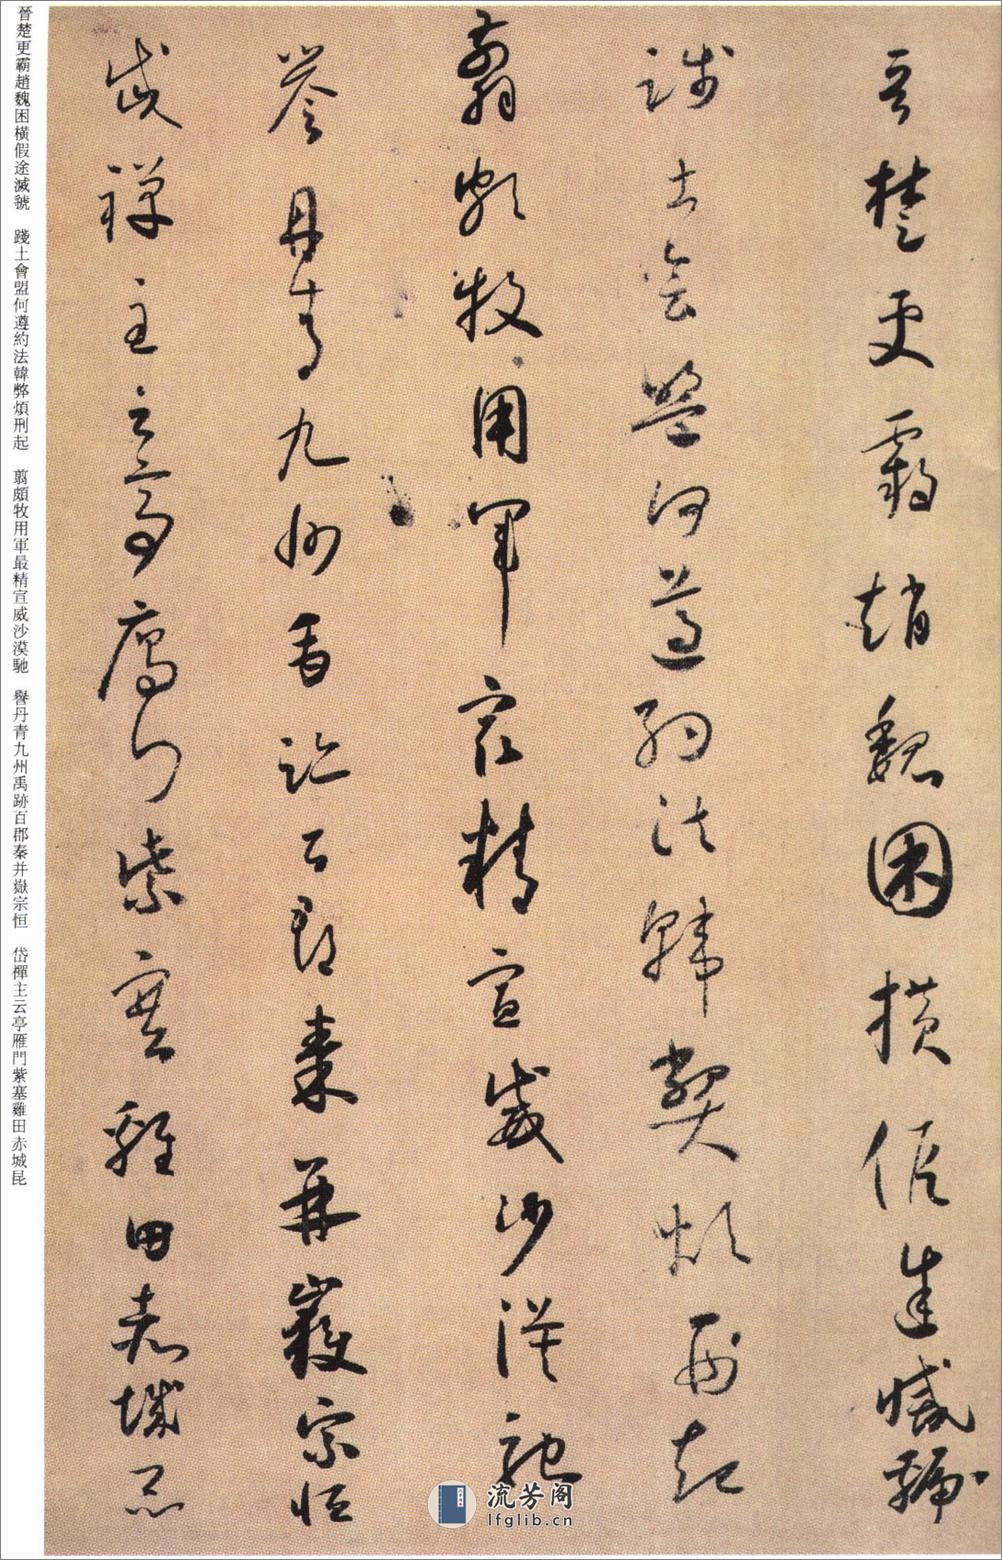 晉楚更霸趙魏困橫假途滅虢
踐土會盟何遵約法韓弊煩刑起
翦頗牧用軍最精宣威沙漠馳
譽丹青九州禹跡百郡秦并嶽宗恒
岱禪主云亭雁門紫塞雞田赤城昆
晉楚更霸趙魏困橫假途滅虢 踐土會盟何遵約法韓弊煩刑起 翦頗牧用軍最精宣威沙漠馳 譽丹青九州禹跡百郡秦并嶽宗恒 岱禪主云亭雁門紫塞雞田赤城昆
流芳阁
lfglib.cn